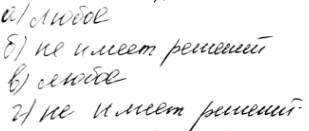 а) любое
б) не имеет решений
в) любое
г) не имеет решений.